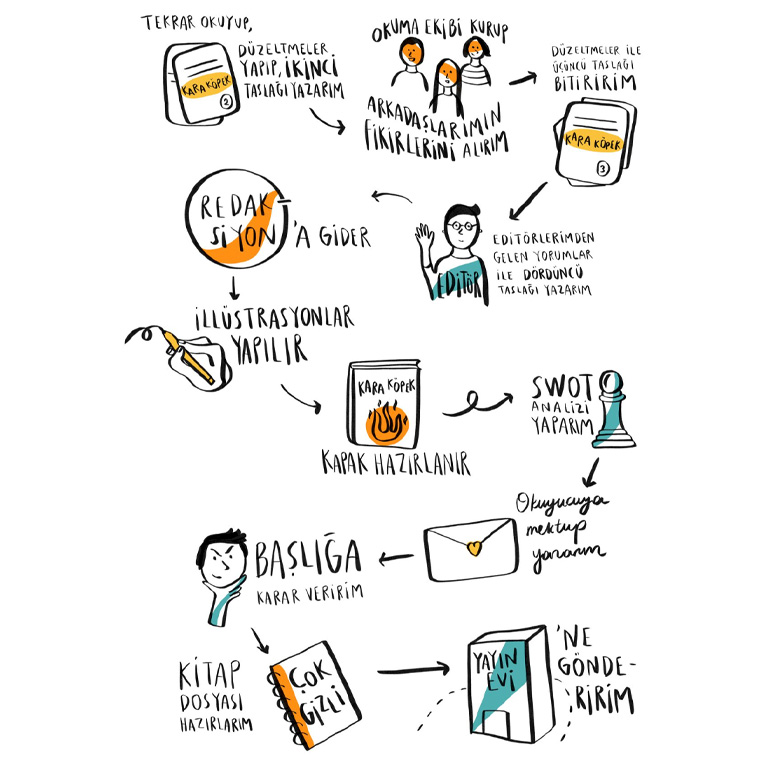 TEKRAR OKUYUP,
DÜZELTMELER
YAPIP, İKİNCİ
TASLAĞI YAZARIM
KARA KÖPEK
2
OKUMA EKİBİ KURUP
ARKADAŞLARIMIN
FİKİRLERİNİ ALIRIM
DÜZELTMELER İLE
ÜÇÜNCÜ TASLAĞI
BİTİRİRİM
KARA KÖPEK
3
EDİTÖR
EDİTÖRLERİMDEN
GELEN YORUMLAR
İLE DÖRDÜNCÜ
TASLAĞI YAZARIM
REDAK-
SİYON'A GİDER
İLLÜSTRASYONLAR
YAPILIR
KARA KÖPEK
KAPAK HAZIRLANIR
SWOT
ANALİZİ
YAPARIM
Okuyucuya
mektup
yazarım
BAŞLIĞA
KARAR VERİRİM
KİTAP
DOSYASI
HAZIRLARIM
ÇOK
GİZLİ
YAYIN
EVİ
'NE
GÖNDE-
RİRİM